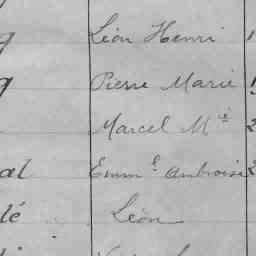 g Léon Henri 1
g Pierre Marie 1
Marcel M^ie 2
al Emm^l Ambroise 2
lé Léon